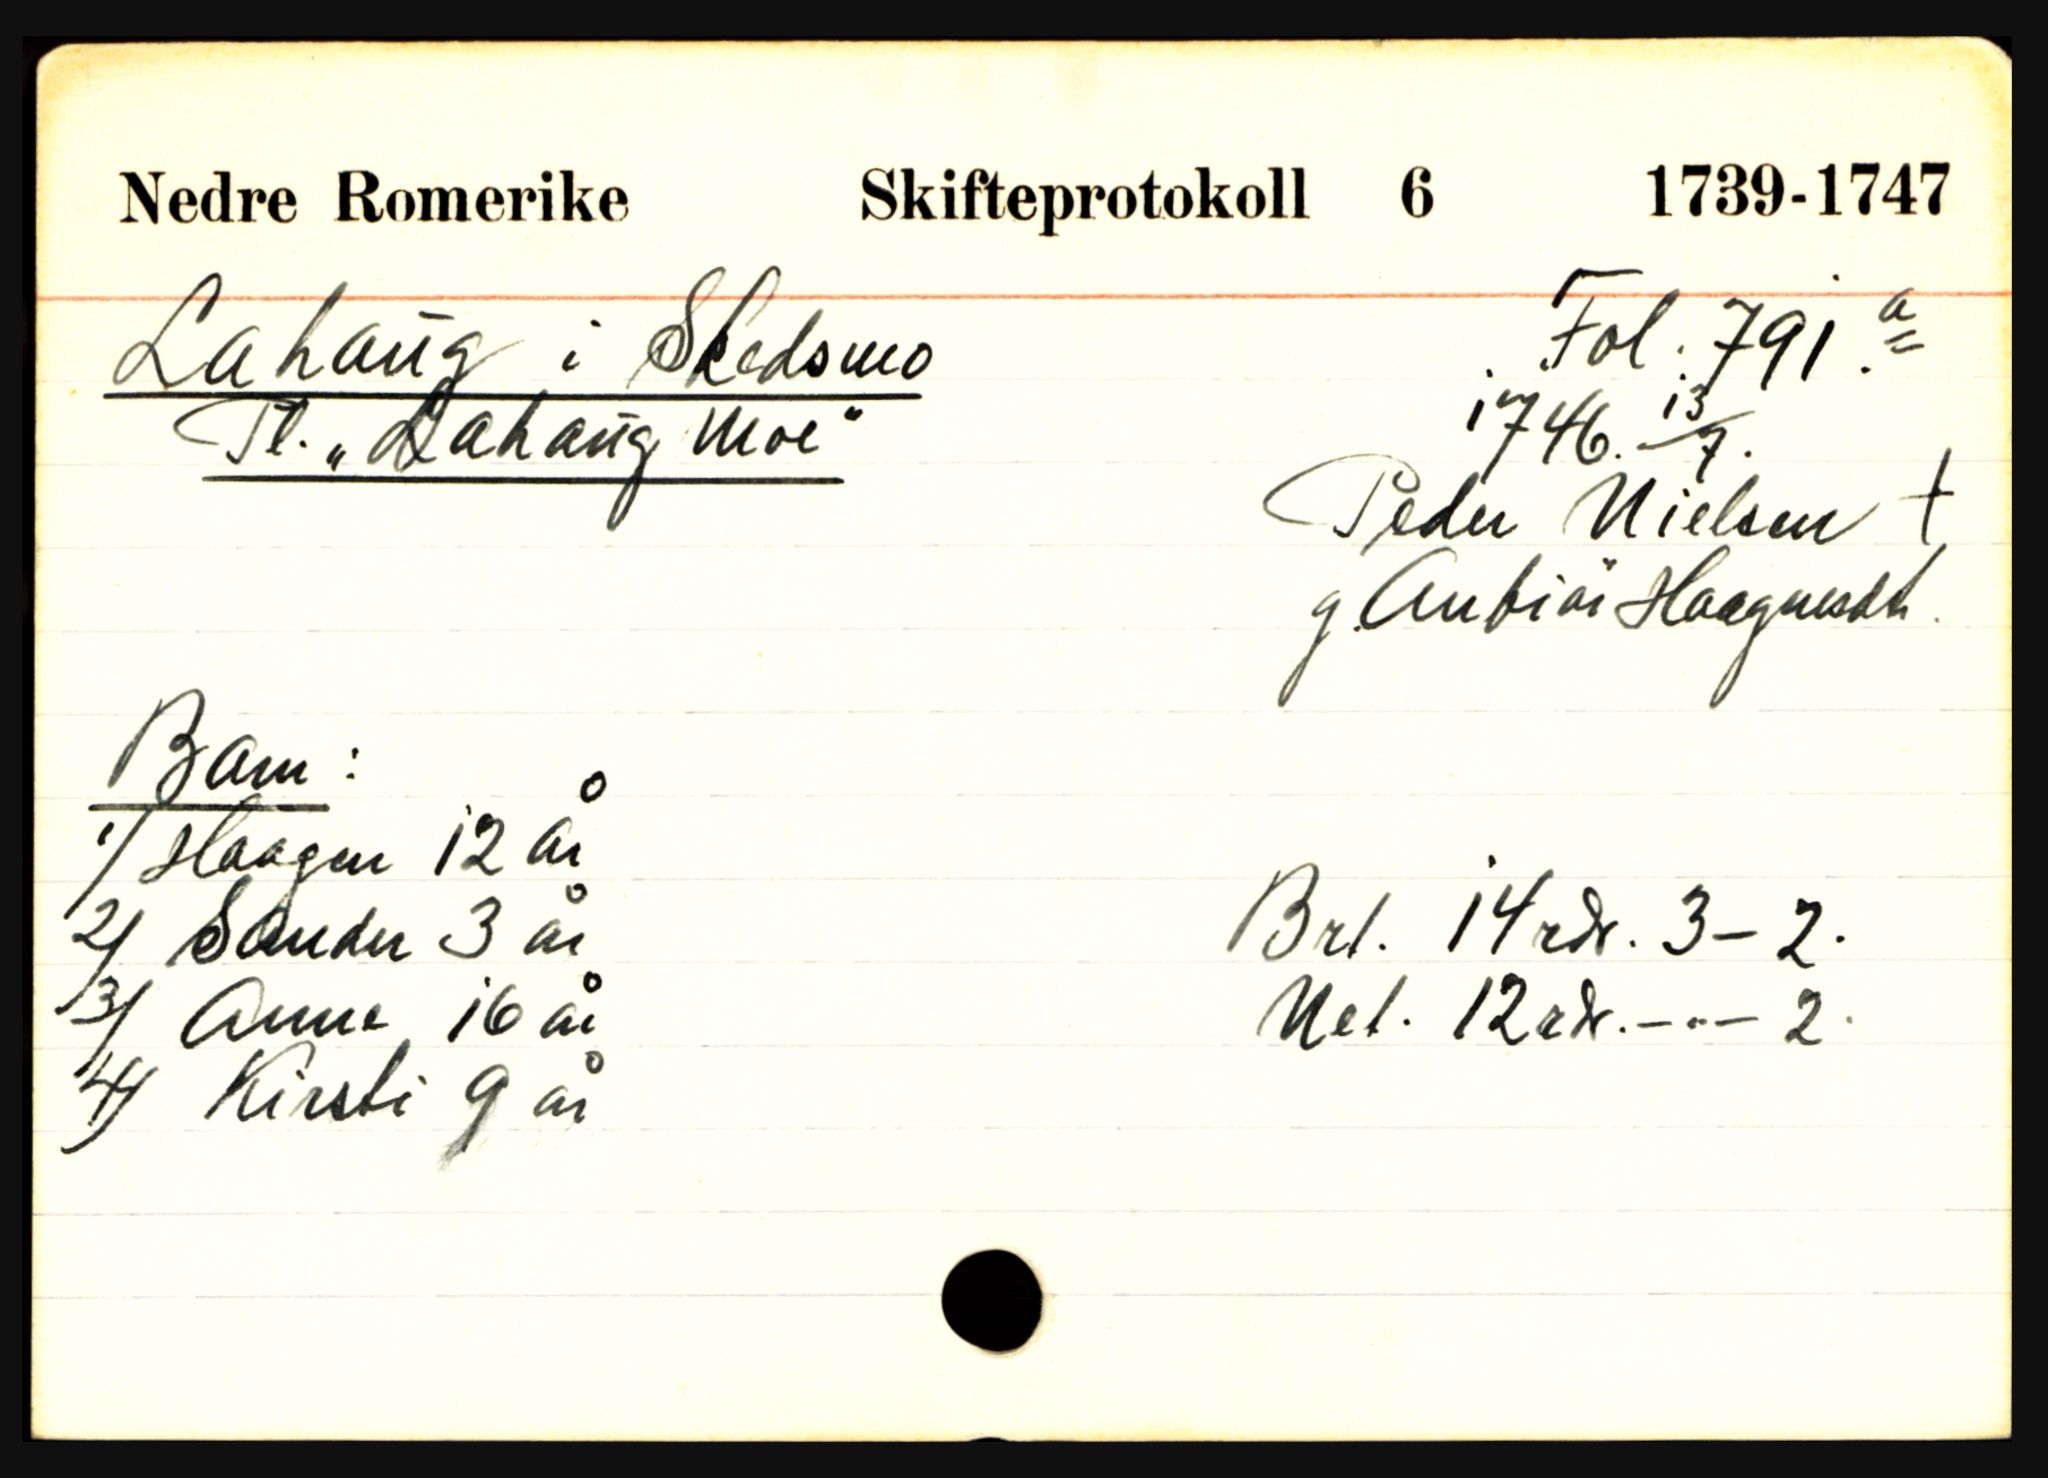 Nedre Romerike Skifteprotokoll 6 1739-1747
Lahaug i Skedsmo
Pl. „Lahaug Moe"
Fol. 791.a
1746. 13/7.
Peder Nielsen †
g. Anbiör Haagensdtr.
Barn:
1/ Haagen 12 år
2/ Sander 3 år
3/ Anne 16 år
4/ Kirsti 9 år
Brt. 14 rdr. 3 - 2.
Net. 12 rdr. - " - 2.